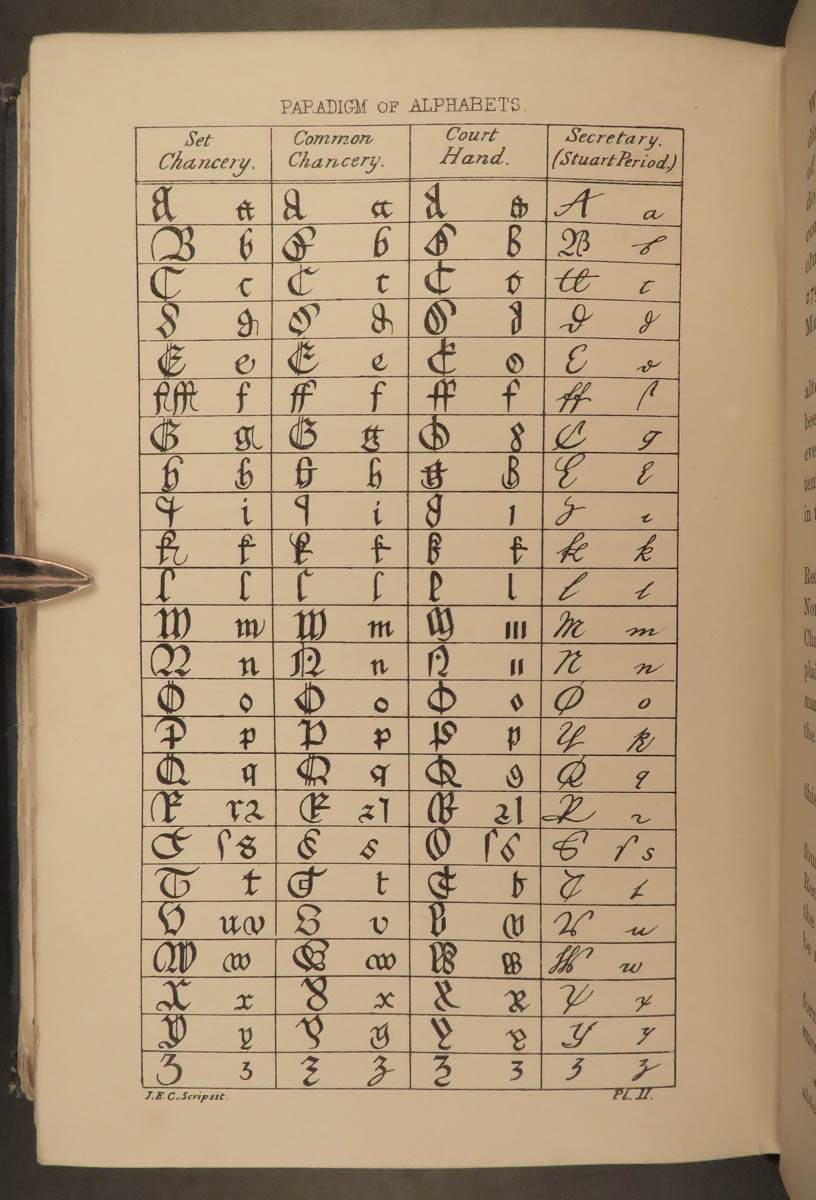 PARADIGM OF ALPHABETS.
Set Chancery. Common Chancery. Court Hand. Secretary. (Stuart Period.)
A a A a A a A a
B b B b B b B b
C c C c C c C c
D d D d D d D d
E e E e E e E e
ff ffl f ff f ff f ff f
G g G g G g G g
h h h h h h h h
I i I i I i I i
k k k k k k k k
l l l l l l l l
M m M m M m M m
N n N n N n N n
O o O o O o O o
P p P p P p P p
Q q Q q Q q Q q
R r2 R 2l R 2l R 2
S ſs S s S ſs S ſs
T t T t T t T t
V uv V v V v V u
W w W w W w W w
X x X x X x X x
Y y Y y Y y Y y
Z z Z z Z z Z z
J.E.C. Scripsit. Pl. II.